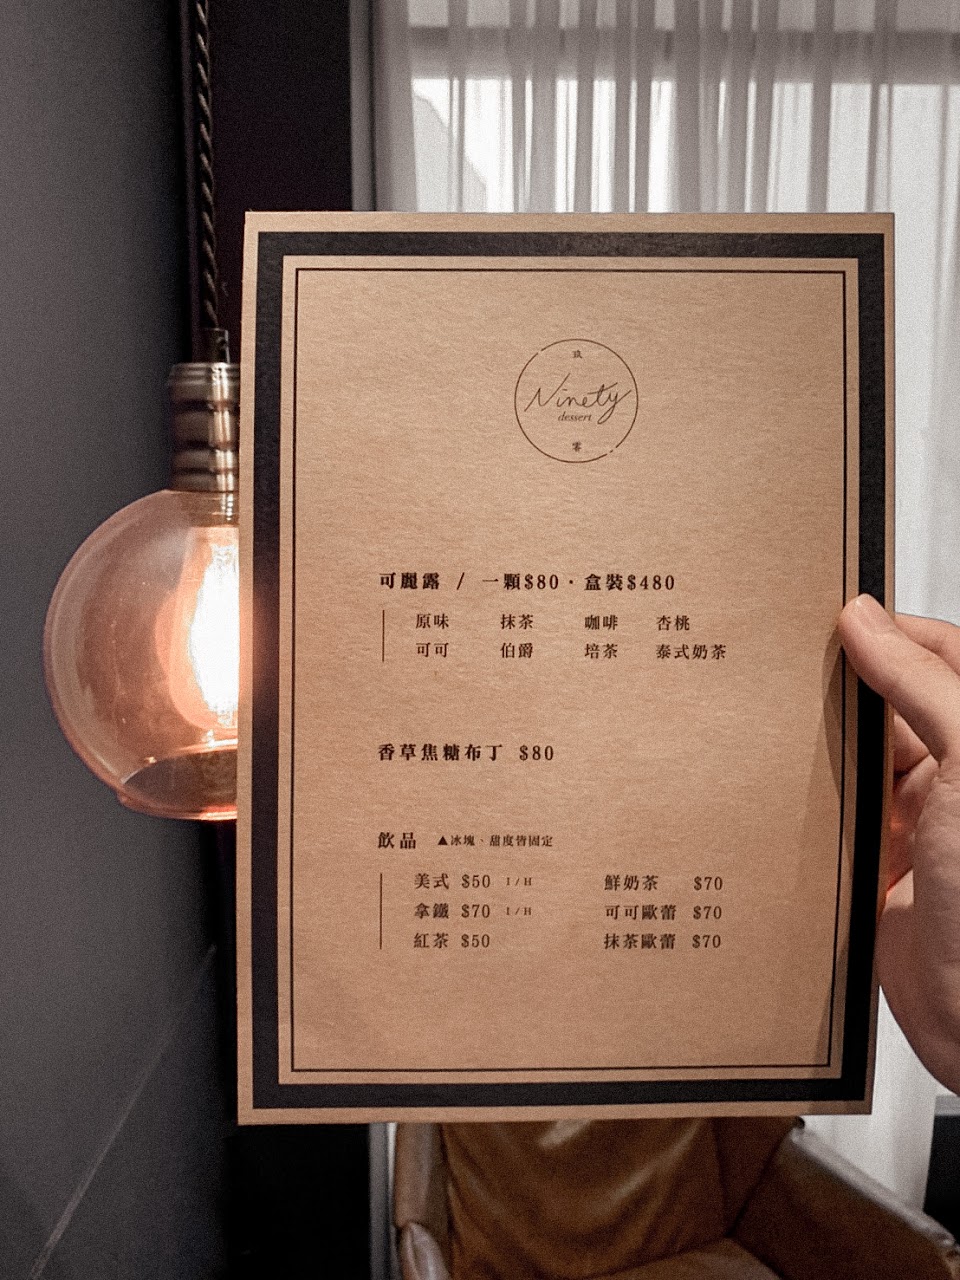 玖
Ninety
dessert
零
可麗露 / 一顆$80 · 盒裝$480
原味 抹茶 咖啡 杏桃
可可 伯爵 培茶 泰式奶茶
香草焦糖布丁 $80
飲品 ▲冰塊、甜度皆固定
美式 $50 I/H 鮮奶茶 $70
拿鐵 $70 I/H 可可歐蕾 $70
紅茶 $50 抹茶歐蕾 $70